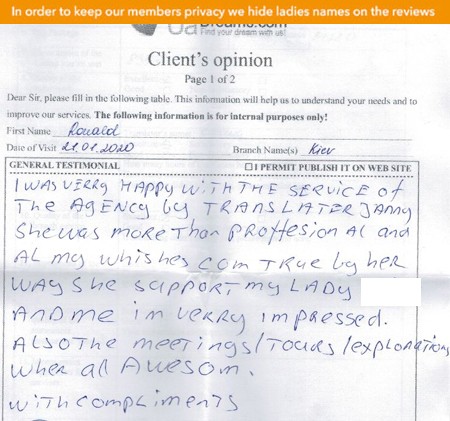 In order to keep our members privacy we hide ladies names on the reviews
UaDreams.com
Find your dream with us!
Client's opinion
Page 1 of 2
Dear Sir, please fill in the following table. This information will help us to understand your needs and to
improve our services. The following information is for internal purposes only!
First Name Ronald
Date of Visit 21.01.2020 Branch Name(s) Kiev
GENERAL TESTIMONIAL ☐ I PERMIT PUBLISH IT ON WEB SITE
I WAS VERRY HAPPY WITH THE SERVICE of
The AGENCY by TRANSLATER JANNY
She was more Than PROFFESIONAL and
AL my WHISHES COM TRUE by her
WAY She SUPPORT my LADY
AND me im VERRY impressed.
Also The meetings/Tours/explorations
Wher all Awesom.
WITH COMPLIMENTS